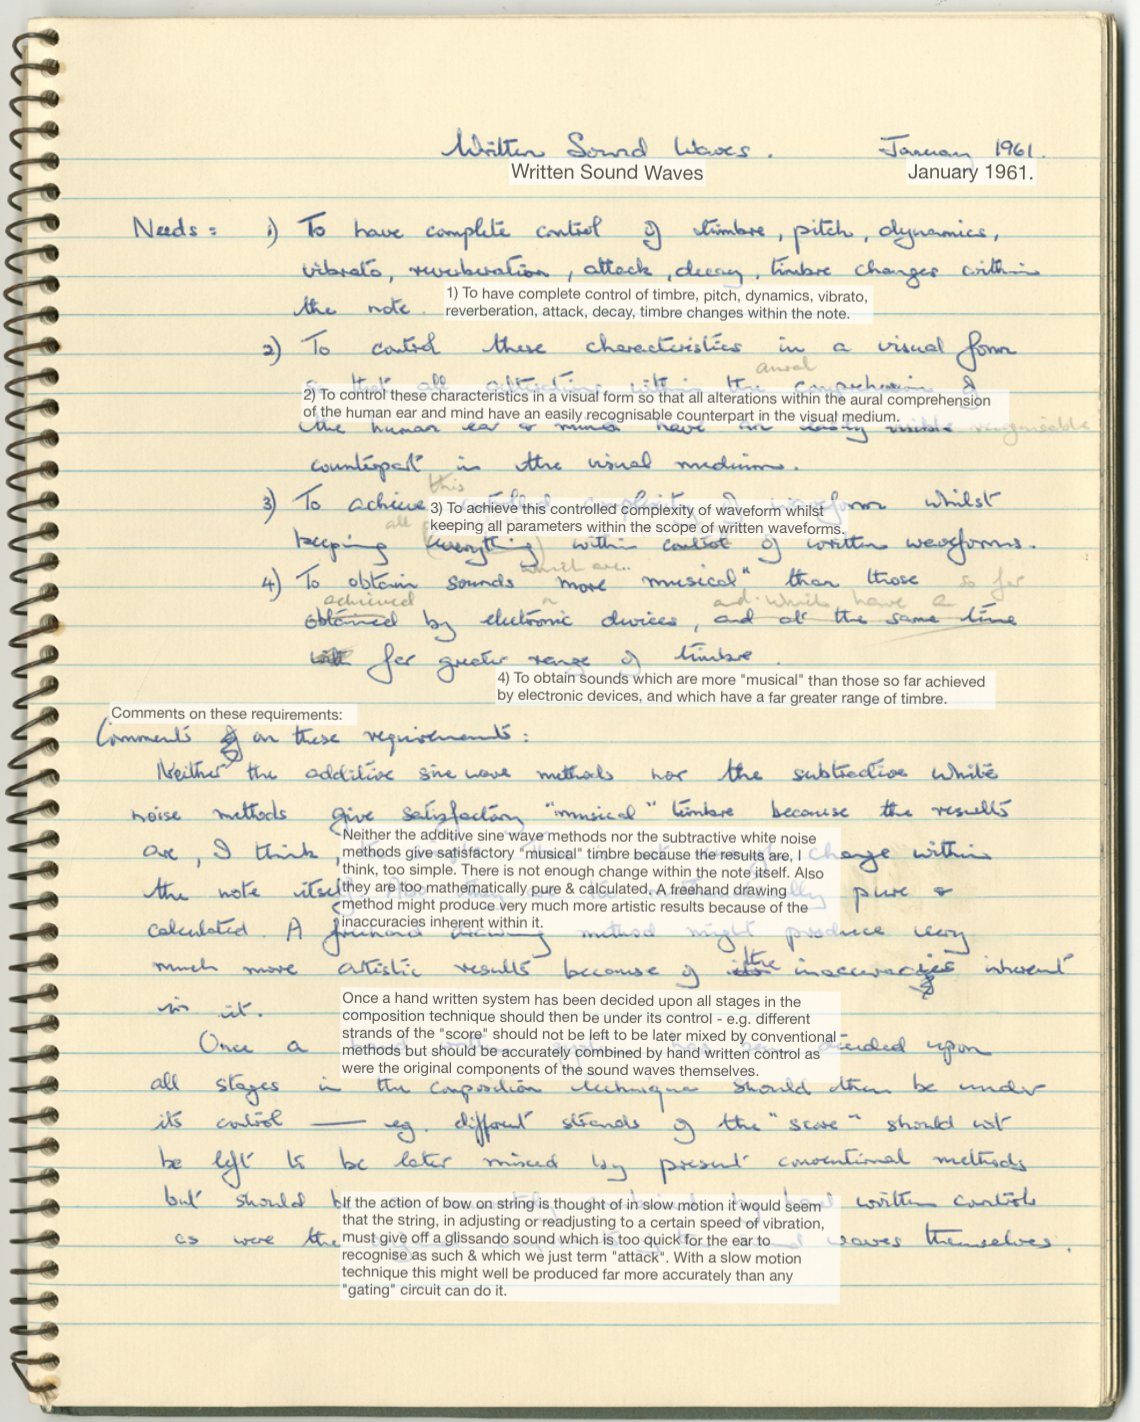 Written Sound Waves. January 1961.
Written Sound Waves January 1961.
Needs: 1) To have complete control of timbre, pitch, dynamics,
vibrato, reverberation, attack, decay, timbre changes within
the note.
1) To have complete control of timbre, pitch, dynamics, vibrato,
reverberation, attack, decay, timbre changes within the note.
2) To control these characteristics in a visual form
aural
so that all alterations within the comprehension of
2) To control these characteristics in a visual form so that all alterations within the aural comprehension
of the human ear and mind have an easily recognisable counterpart in the visual medium.
the human ear & mind have an easily visible recognisable
counterpart in the visual medium.
this
3) To achieve controlled complexity of waveform whilst
3) To achieve this controlled complexity of waveform whilst
keeping all parameters within the scope of written waveforms.
all
keeping (everything) within control of written waveforms.
which are..
4) To obtain sounds more musical" than those so far
achieved and which have a
obtained by electronic devices, and at the same time
far greater range of timbre.
4) To obtain sounds which are more "musical" than those so far achieved
by electronic devices, and which have a far greater range of timbre.
Comments on these requirements:
Comments on these requirements:
Neither the additive sine wave methods nor the subtractive white
noise methods give satisfactory "musical" timbre because the results
Neither the additive sine wave methods nor the subtractive white noise
methods give satisfactory "musical" timbre because the results are, I
think, too simple. There is not enough change within the note itself. Also
they are too mathematically pure & calculated. A freehand drawing
method might produce very much more artistic results because of the
inaccuracies inherent within it.
are, I think, change within
the note itself. pure &
calculated. A freehand drawing method might produce very
much more artistic results because of the inaccuracies inherent
in it.
Once a hand written system has been decided upon all stages in the
composition technique should then be under its control - e.g. different
strands of the "score" should not be left to be later mixed by conventional
methods but should be accurately combined by hand written control as
were the original components of the sound waves themselves.
Once a decided upon
all stages in the composition technique should then be under
its control — eg. different strands of the "score" should not
be left to be later mixed by present conventional methods
but should written control
as were the waves themselves.
If the action of bow on string is thought of in slow motion it would seem
that the string, in adjusting or readjusting to a certain speed of vibration,
must give off a glissando sound which is too quick for the ear to
recognise as such & which we just term "attack". With a slow motion
technique this might well be produced far more accurately than any
"gating" circuit can do it.